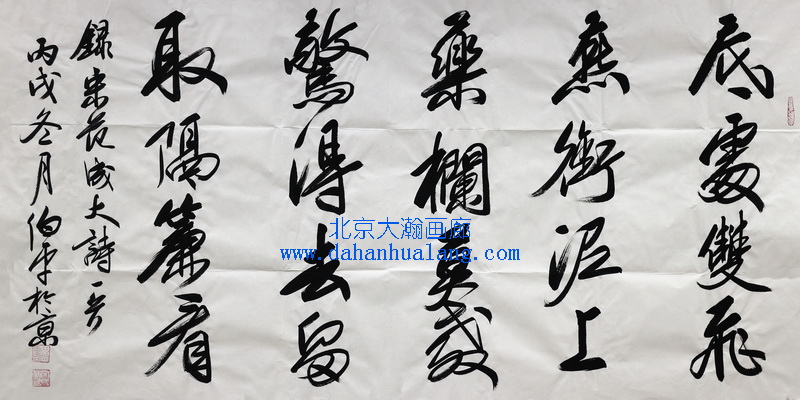 底處雙飛
燕銜泥上
藥欄莫教
驚得去留
取隔簾看
錄宋范成大詩一首
丙戌冬月伯平於京
北京大瀚画廊
www.dahanhualang.com